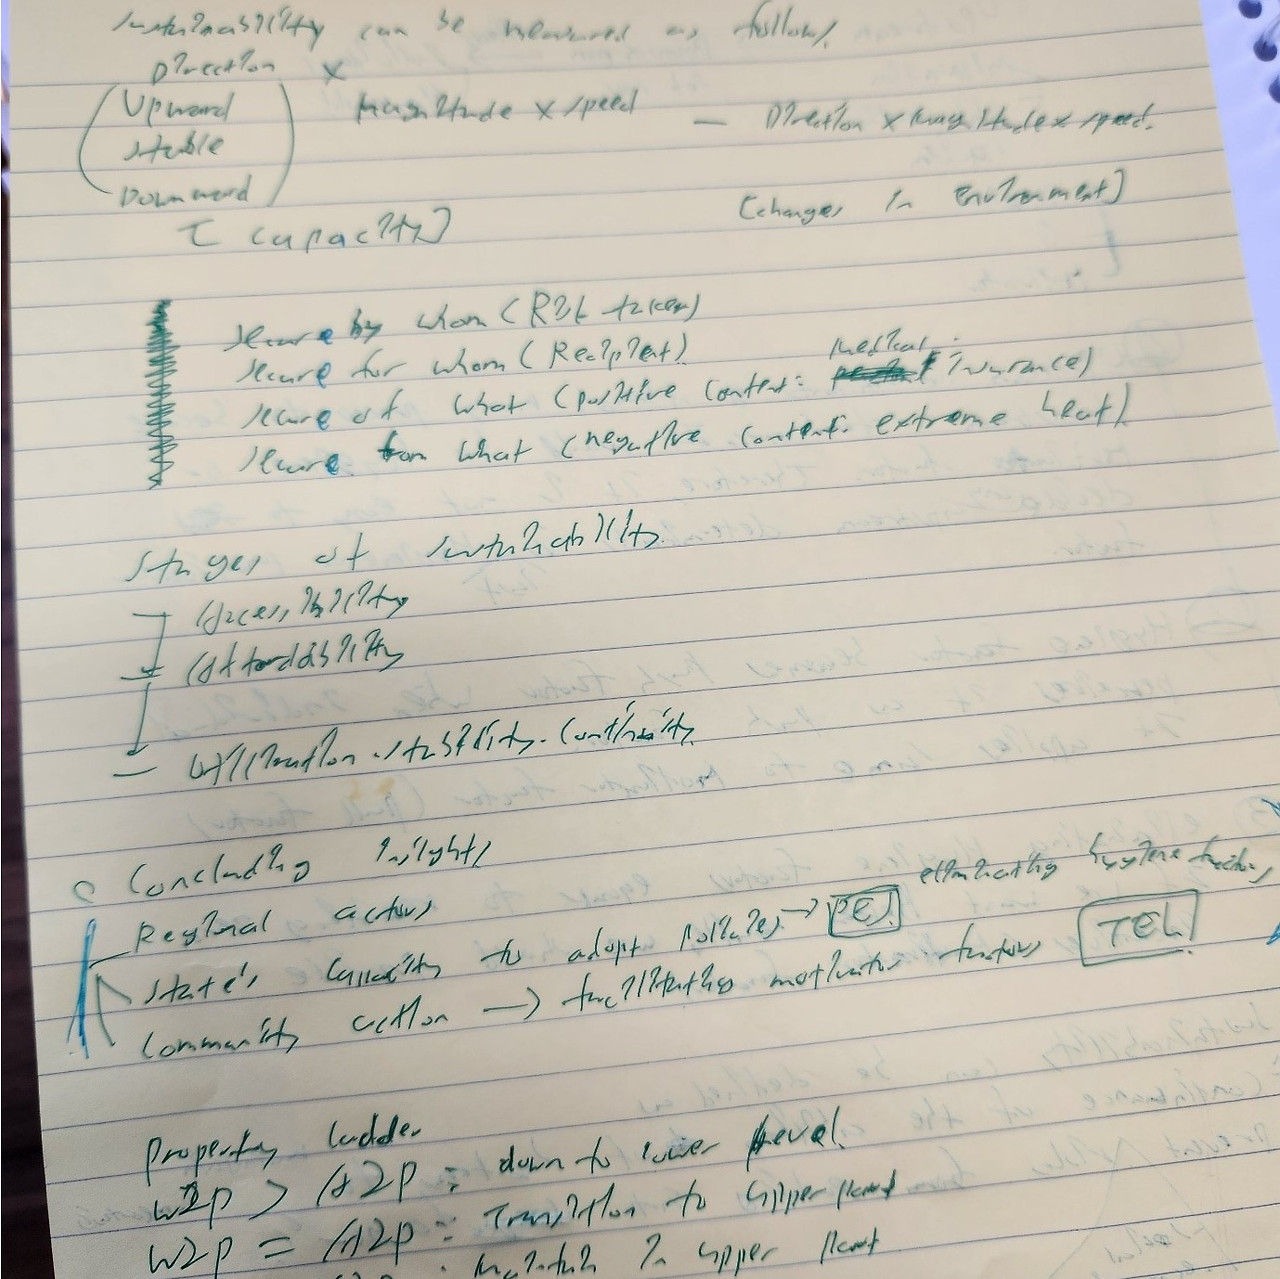 Sustainability can be measured as follows.
Direction ×
(Upward
stable
Downward)
Magnitude × speed — Direction × Magnitude × speed.
[capacity]
[changes in environment]
secure by whom (Risk taker)
secure for whom (Recipient)
secure of what (positive content: medical insurance)
secure from what (negative content: extreme heat)
Stages of sustainability.
Accessibility
Affordability
Utilization. stability. Continuity
Concluding insights
Regional actors
State's capacity to adopt policies → PE eliminating hygiene factors
Community action → facilitating motivator factors TEL
Property ladder
W2P > A2P : down to lower level.
W2P = A2P : Transition to upper
Maintain in upper